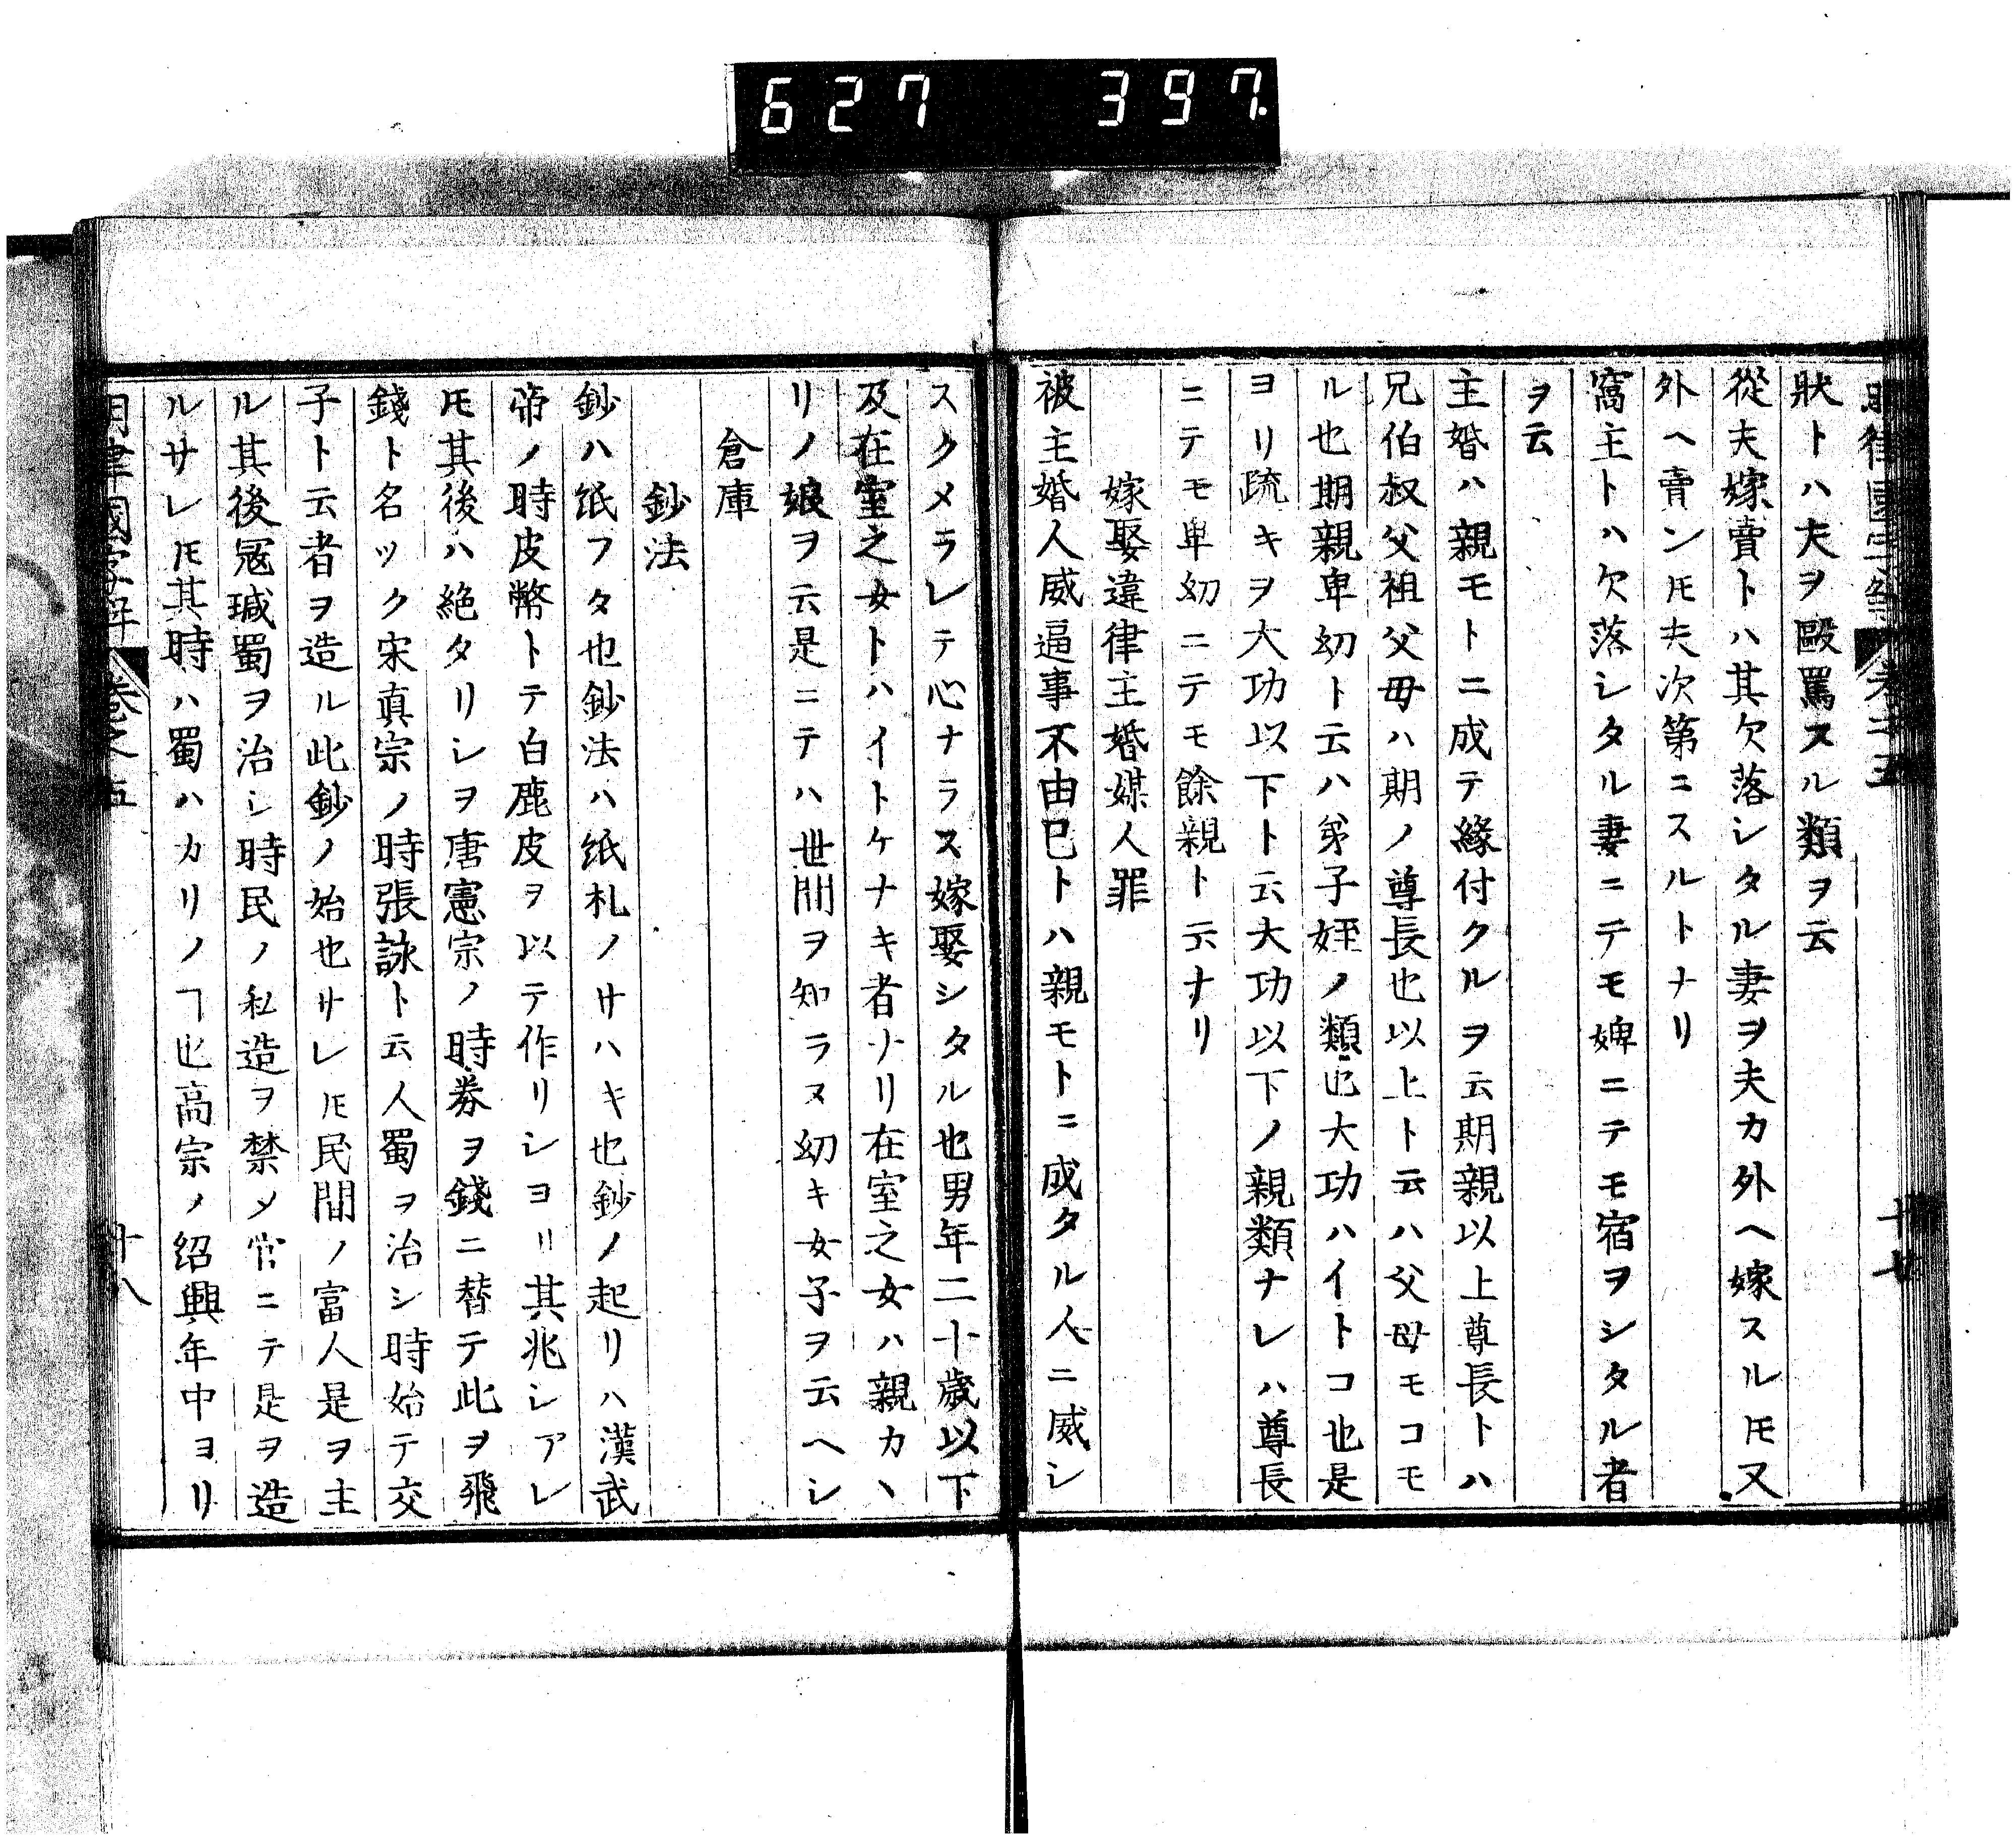 627 397
狀トハ夫ヲ毆罵スル類ヲ云
從夫嫁賣トハ其欠落シタル妻ヲ夫カ外ヘ嫁スルㇳモ又
外ヘ賣ンㇳモ夫次第ニスルトナリ
窩主トハ欠落シタル妻ニテモ婢ニテモ宿ヲシタル者
ヲ云
主婚ハ親モトニ成テ緣付クルヲ云期親以上尊長トハ
兄伯叔父祖父母ハ期ノ尊長也以上ト云ハ父母モコモ
ル也期親卑幼ト云ハ弟子姪ノ類也大功ハイトコ也是
ヨリ疏キヲ大功以下ト云大功以下ノ親類ナレハ尊長
ニテモ卑幼ニテモ餘親ト云ナリ
嫁娶違律主婚媒人罪
被主婚人威逼事不由已トハ親モトニ成タル人ニ威シ
スクメラレテ心ナラス嫁娶シタル也男年二十歲以下
及在室之女トハイトケナキ者ナリ在室之女ハ親カヽ
リノ娘ヲ云是ニテハ世間ヲ知ラヌ幼キ女子ヲ云ヘシ
倉庫
鈔法
鈔ハ紙フタ也鈔法ハ紙札ノサハキ也鈔ノ起リハ漢武
帝ノ時皮幣トテ白鹿皮ヲ以テ作リシヨリ其兆シアレ
ㇳモ其後ハ絶タリシヲ唐憲宗ノ時券ヲ錢ニ替テ此ヲ飛
錢ト名ツク宋真宗ノ時張詠ト云人蜀ヲ治シ時始テ交
子ト云者ヲ造ル此鈔ノ始也サレㇳモ民間ノ富人是ヲ主
ル其後冦瑊蜀ヲ治シ時民ノ私造ヲ禁メ官ニテ是ヲ造
ルサレㇳモ其時ハ蜀ハカリノヿ也高宗ノ紹興年中ヨリ
明律國字解 卷之五 十八